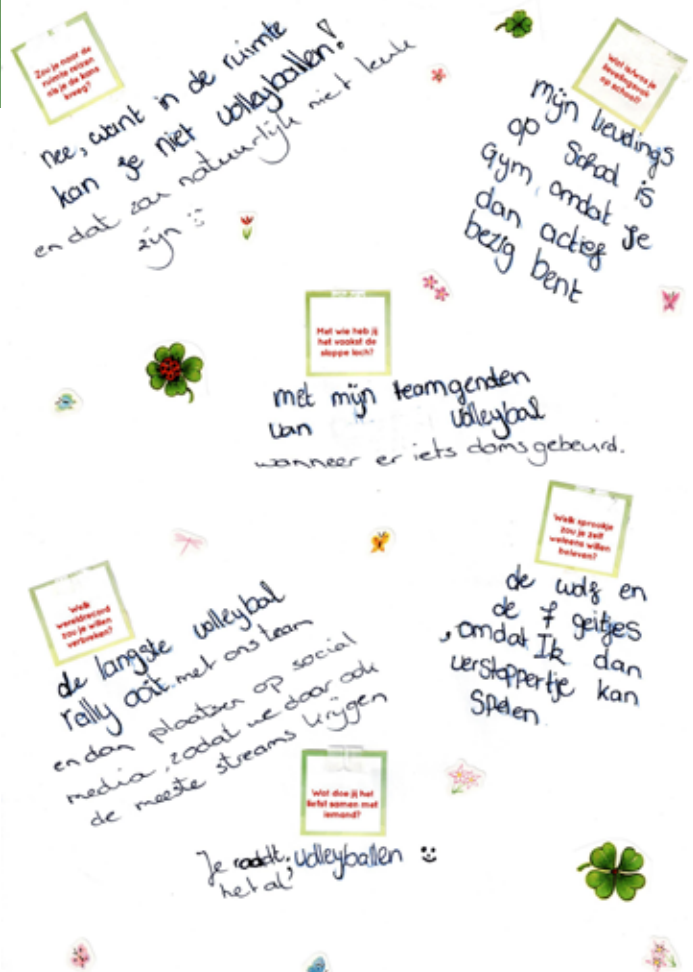 Zou je naar de
ruimte reizen
als je de kans
kreeg?
nee, want in de ruimte
kan je niet volleyballen!
en dat zou natuurlijk niet leuk
zijn :)
Wat is/was je
lievelingsvak
op school?
mijn lievelings
op School is
Gym omdat Je
dan actief
bezig bent
Met wie heb jij
het vaakst de
slappe lach?
met mijn teamgenden
van volleybal
wanneer er iets doms gebeurd.
Welk sprookje
zou je zelf
weleens willen
beleven?
de wolf en
de 7 geitjes
, omdat Ik dan
verstoppertje kan
Spelen
Welk
wereldrecord
zou je willen
verbreken?
de langste volleybal
rally ooit met ons team
en dan plaatsen op social
media, zodat we daar ook
de meeste streams krijgen
Wat doe jij het
liefst samen met
iemand?
Je raadt volleyballen :)
het al,